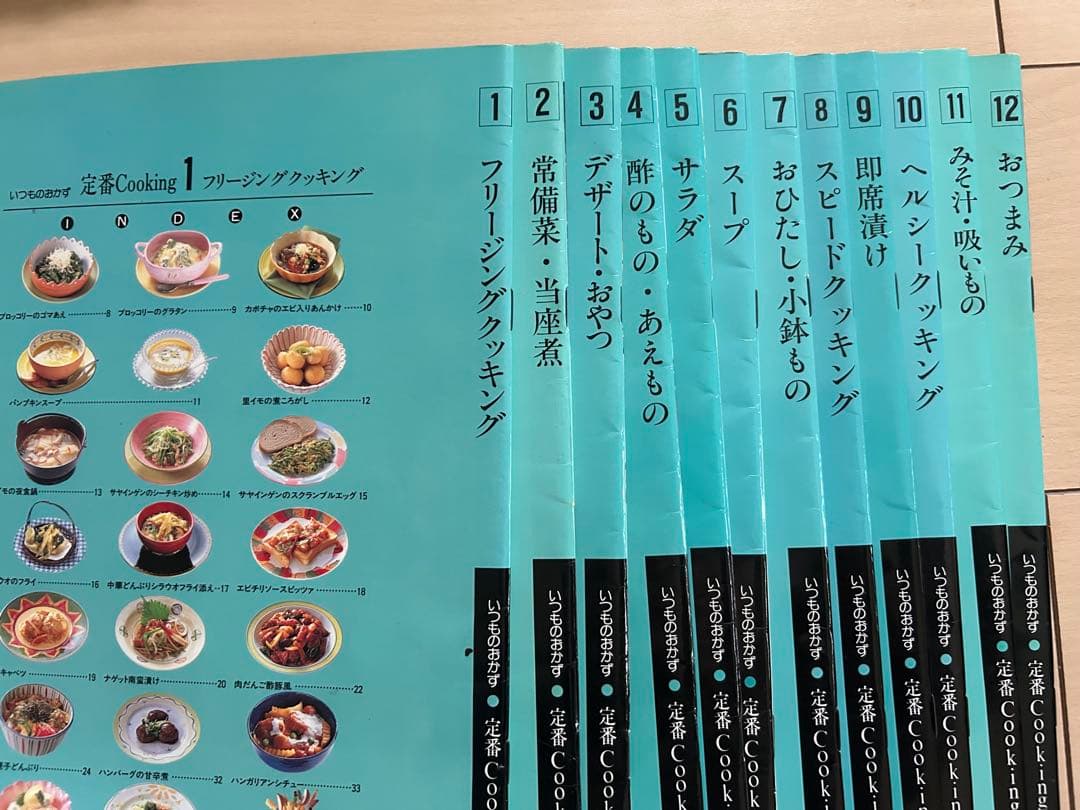 いつものおかず 定番Cooking 1 フリージングクッキング
I N D E X
ブロッコリーのゴマあえ……8
ブロッコリーのグラタン……9
カボチャのエビ入りあんかけ……10
パンプキンスープ……11
里イモの煮ころがし……12
イモの夜食鍋……13
サヤインゲンのシーチキン炒め……14
サヤインゲンのスクランブルエッグ 15
ウオのフライ……16
中華どんぶりシラウオフライ添え…17
エビチリソースピッツァ……18
キャベツ……19
ナゲット南蛮漬け……20
肉だんご酢豚風……22
子どんぶり……24
ハンバーグの甘辛煮……32
ハンガリアンシチュー……33
1 フリージングクッキング
いつものおかず●定番Coo
2 常備菜・当座煮
いつものおかず●定番Cook
3 デザート・おやつ
いつものおかず●定番Cook
4 酢のもの・あえもの
いつものおかず●定番Cook
5 サラダ
いつものおかず●定番Cook
6 スープ
いつものおかず●定番Cook
7 おひたし・小鉢もの
いつものおかず●定番Cook
8 スピードクッキング
いつものおかず●定番Cook
9 即席漬け
いつものおかず●定番Cookin
10 ヘルシークッキング
いつものおかず●定番Cookin
11 みそ汁・吸いもの
いつものおかず●定番Cooking
12 おつまみ
いつものおかず●定番Cooking